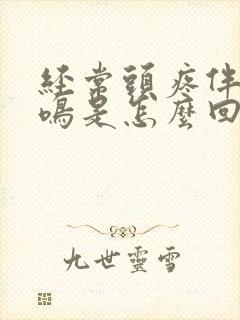 經常頭疼伴
鳴是怎麼回
九世靈雪